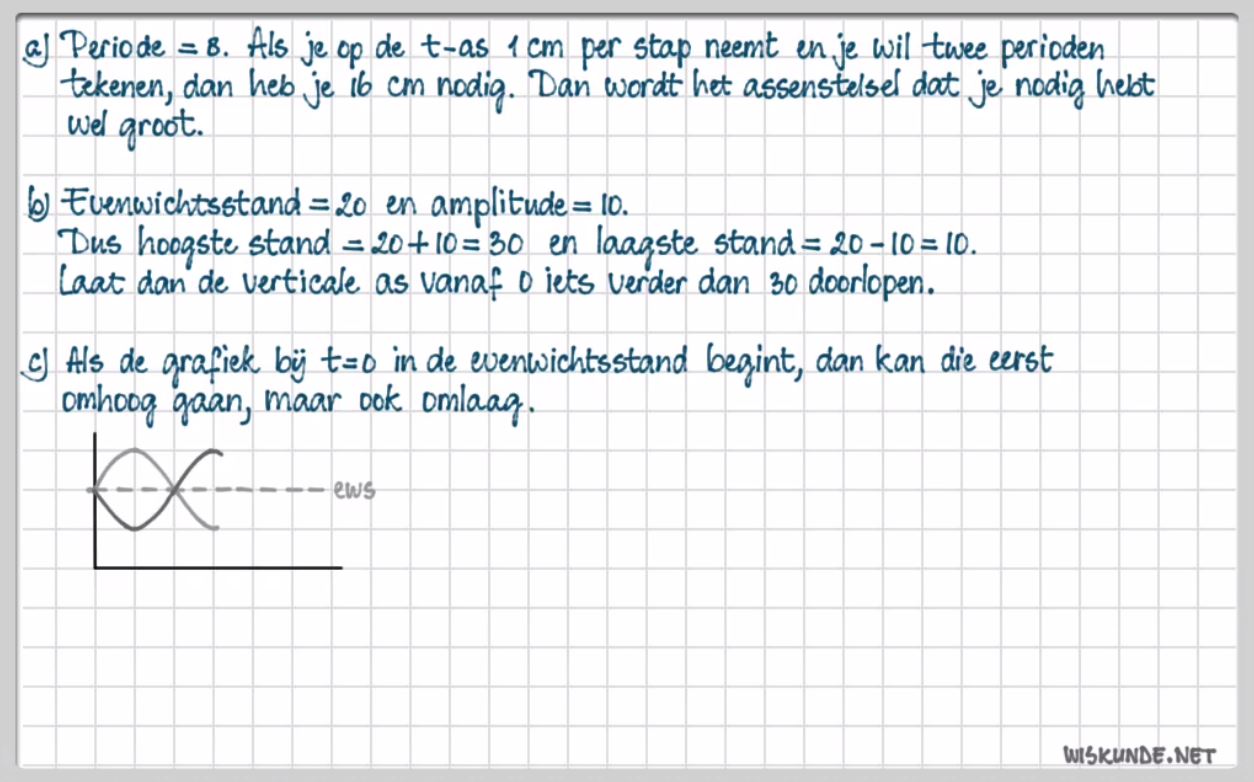 a) Periode = 8. Als je op de t-as 1 cm per stap neemt en je wil twee perioden
tekenen, dan heb je 16 cm nodig. Dan wordt het assenstelsel dat je nodig hebt
wel groot.
b) Evenwichtsstand = 20 en amplitude = 10.
Dus hoogste stand = 20 + 10 = 30 en laagste stand = 20 - 10 = 10.
Laat dan de verticale as vanaf 0 iets verder dan 30 doorlopen.
c) Als de grafiek bij t=0 in de evenwichtsstand begint, dan kan die eerst
omhoog gaan, maar ook omlaag.
ews
WISKUNDE.NET